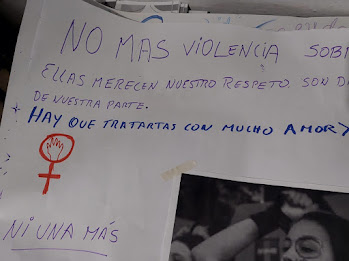 NO MAS VIOLENCIA SOB
ELLAS MERECEN NUESTRO RESPETO. SON D
DE NUESTRA PARTE.
+ HAY QUE TRATARTAS CON MUCHO AMOR Y
NI UNA MÁS